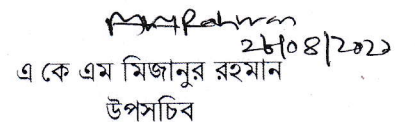 26/08/2020
এ কে এম মিজানুর রহমান
উপসচিব